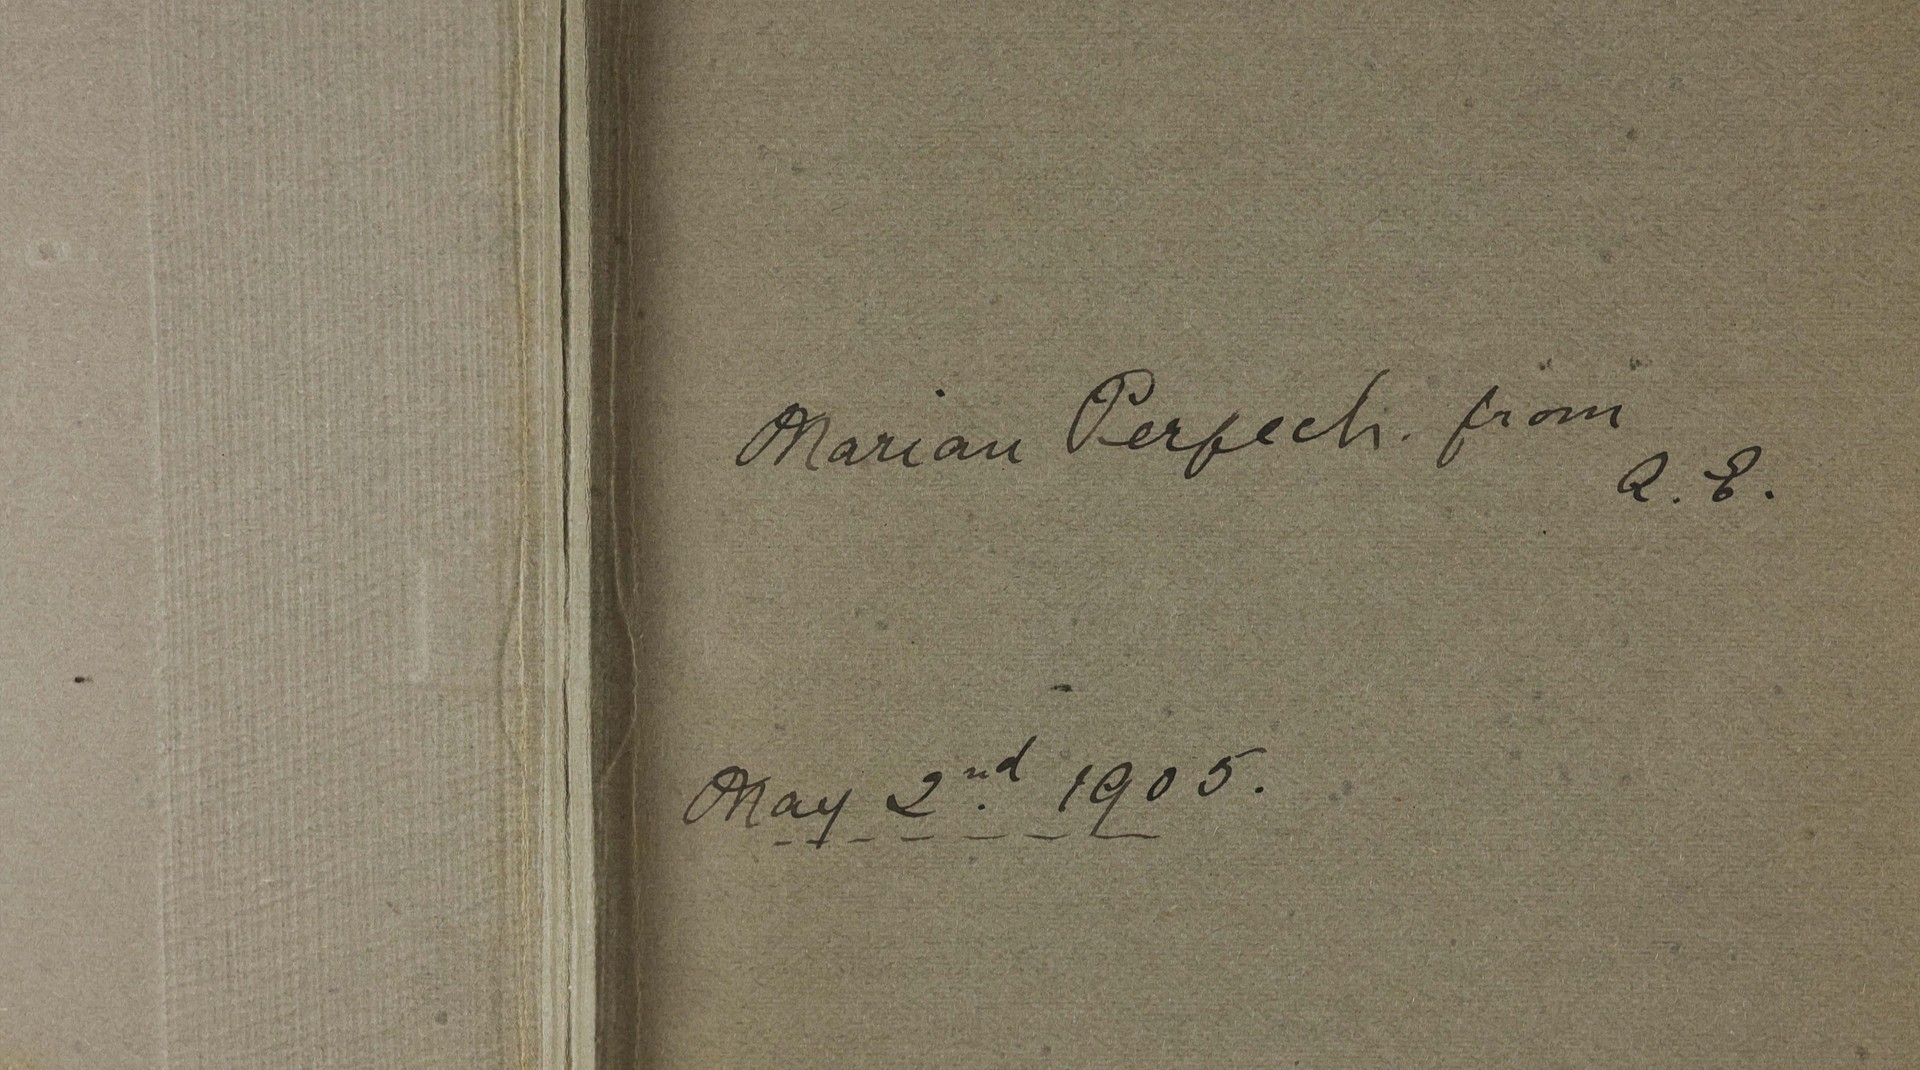 Marian Perfect. from
A. E.
May 2nd 1905.